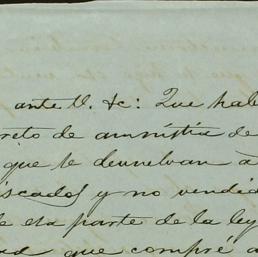 ante V. &c: Que habi
reto de amnistia de
que te devuelvan a
iscados y no vendid
de esa parte de la ley
que compré a